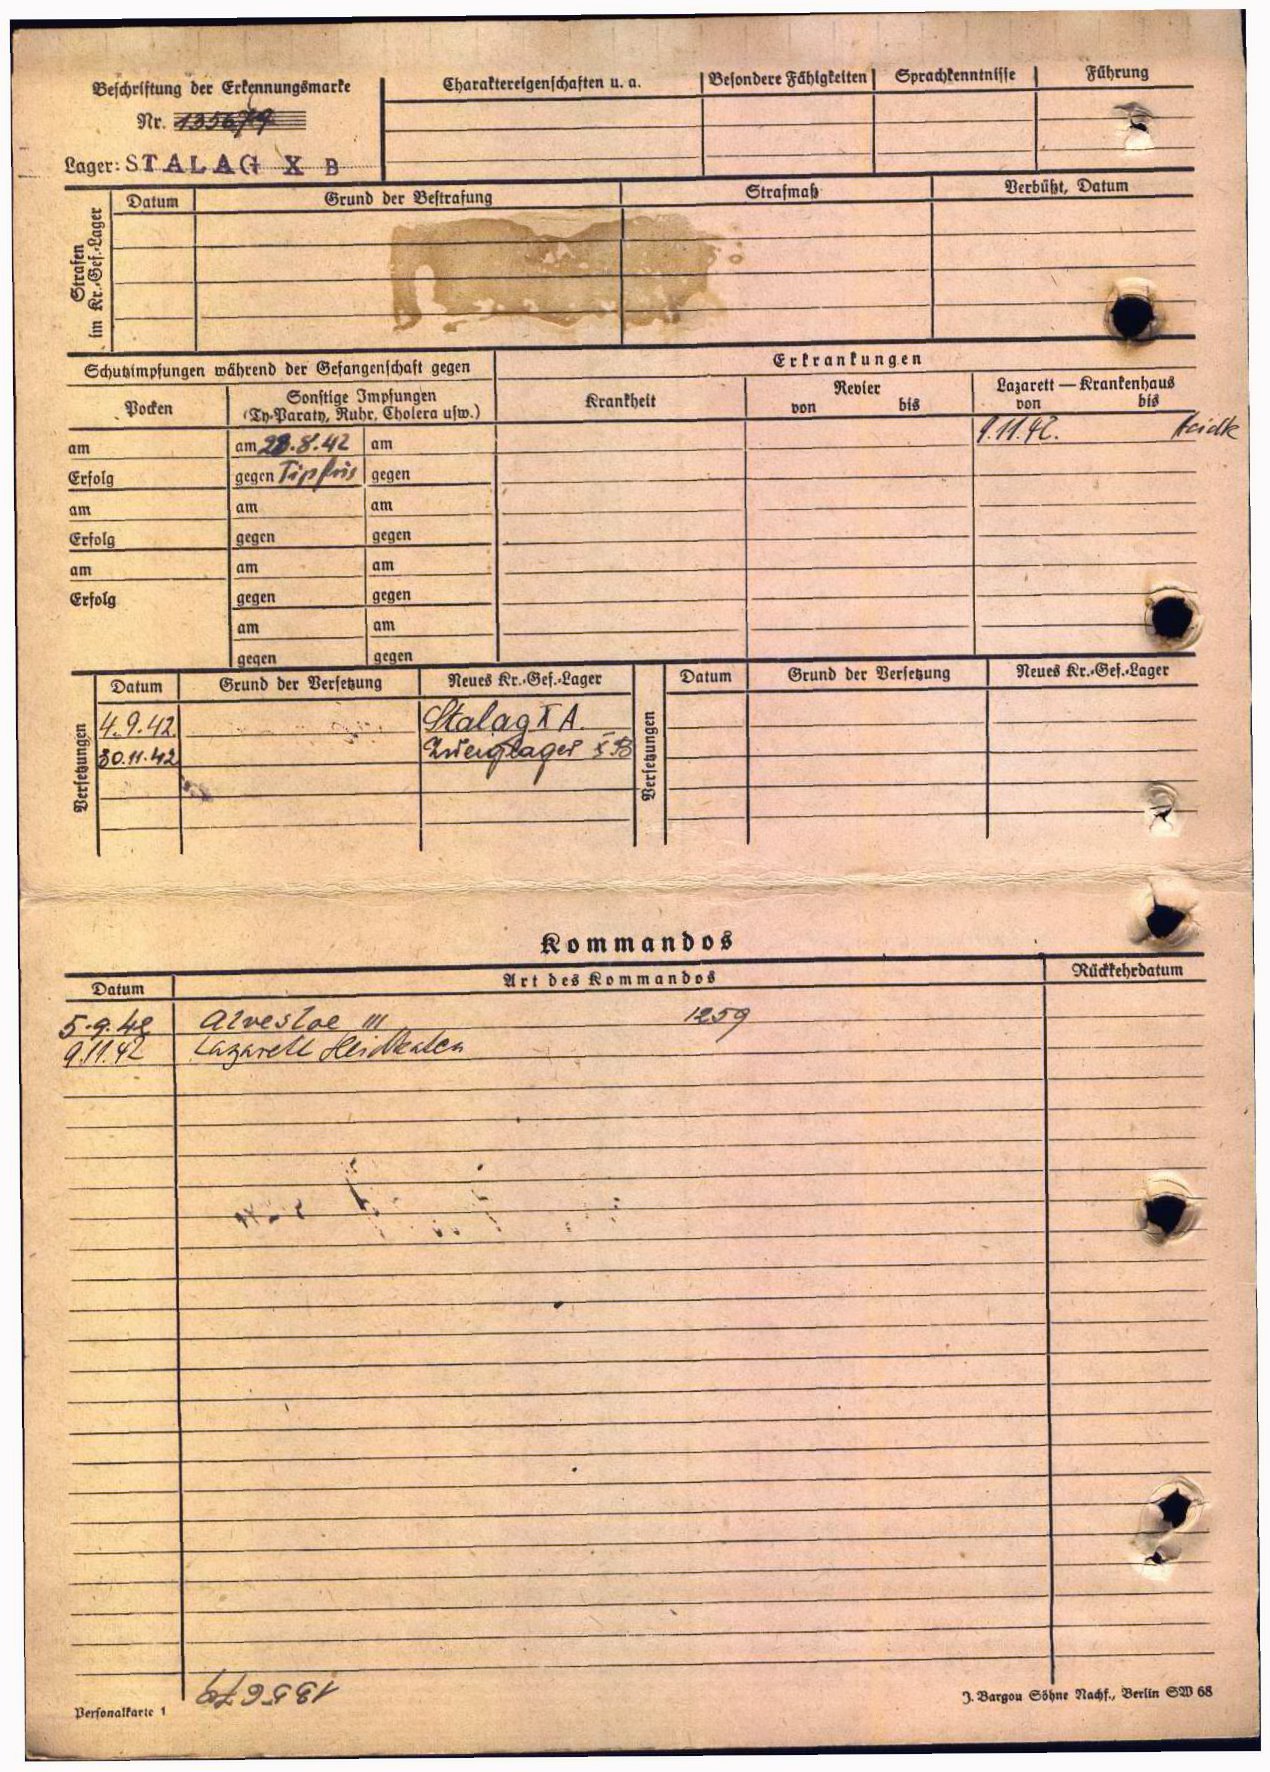 Beschriftung der Erkennungsmarke
Nr. 135679
Lager: STALAG X B
Charaktereigenschaften u. a.
Besondere Fähigkeiten
Sprachkenntnisse
Führung
Strafen
im Kr.-Gef.-Lager
Datum
Grund der Bestrafung
Strafmaß
Verbüßt, Datum
Schutzimpfungen während der Gefangenschaft gegen
Erkrankungen
Pocken
Sonstige Impfungen
(Ty-Paraty, Ruhr, Cholera usw.)
Krankheit
Revier
von bis
Lazarett — Krankenhaus
von bis
am am 28.8.42 am 9.11.42. Heidk
Erfolg gegen gegen
am am am
Erfolg gegen gegen
am am am
Erfolg gegen gegen
am am
gegen gegen
Versetzungen
Datum Grund der Versetzung Neues Kr.-Gef.-Lager
4.9.42. Stalag X A.
30.11.42 Zweiglager X B
Versetzungen
Datum Grund der Versetzung Neues Kr.-Gef.-Lager
Kommandos
Datum Art des Kommandos Rückkehrdatum
5.9.42 Alvesloe III 1259
9.11.42 Lazarett Heidkaten
135679
Personalkarte 1
J. Bargou Söhne Nachf., Berlin SW 68